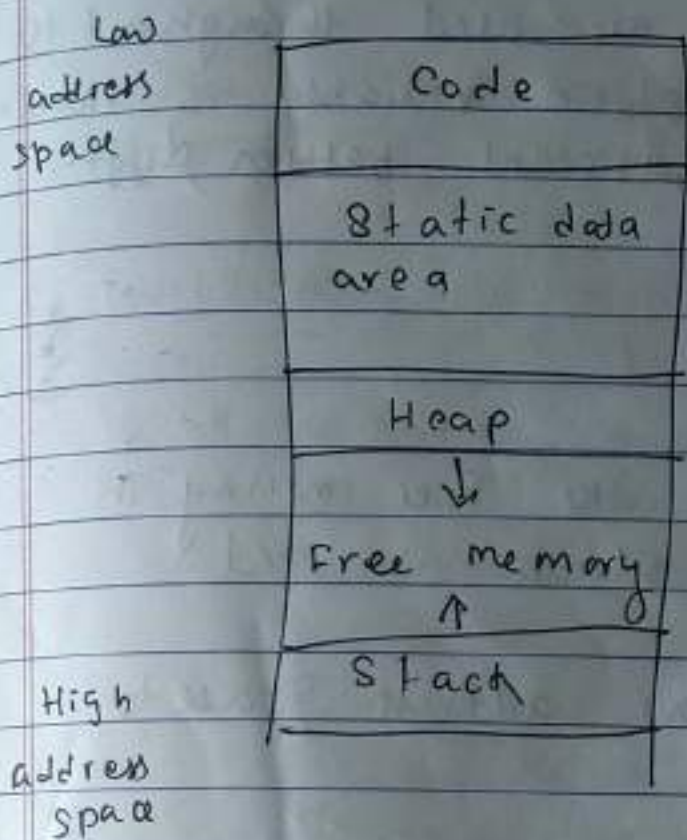 Low
address
space
Code
Static data
area
Heap
↓
Free memory
↑
Stack
High
address
space